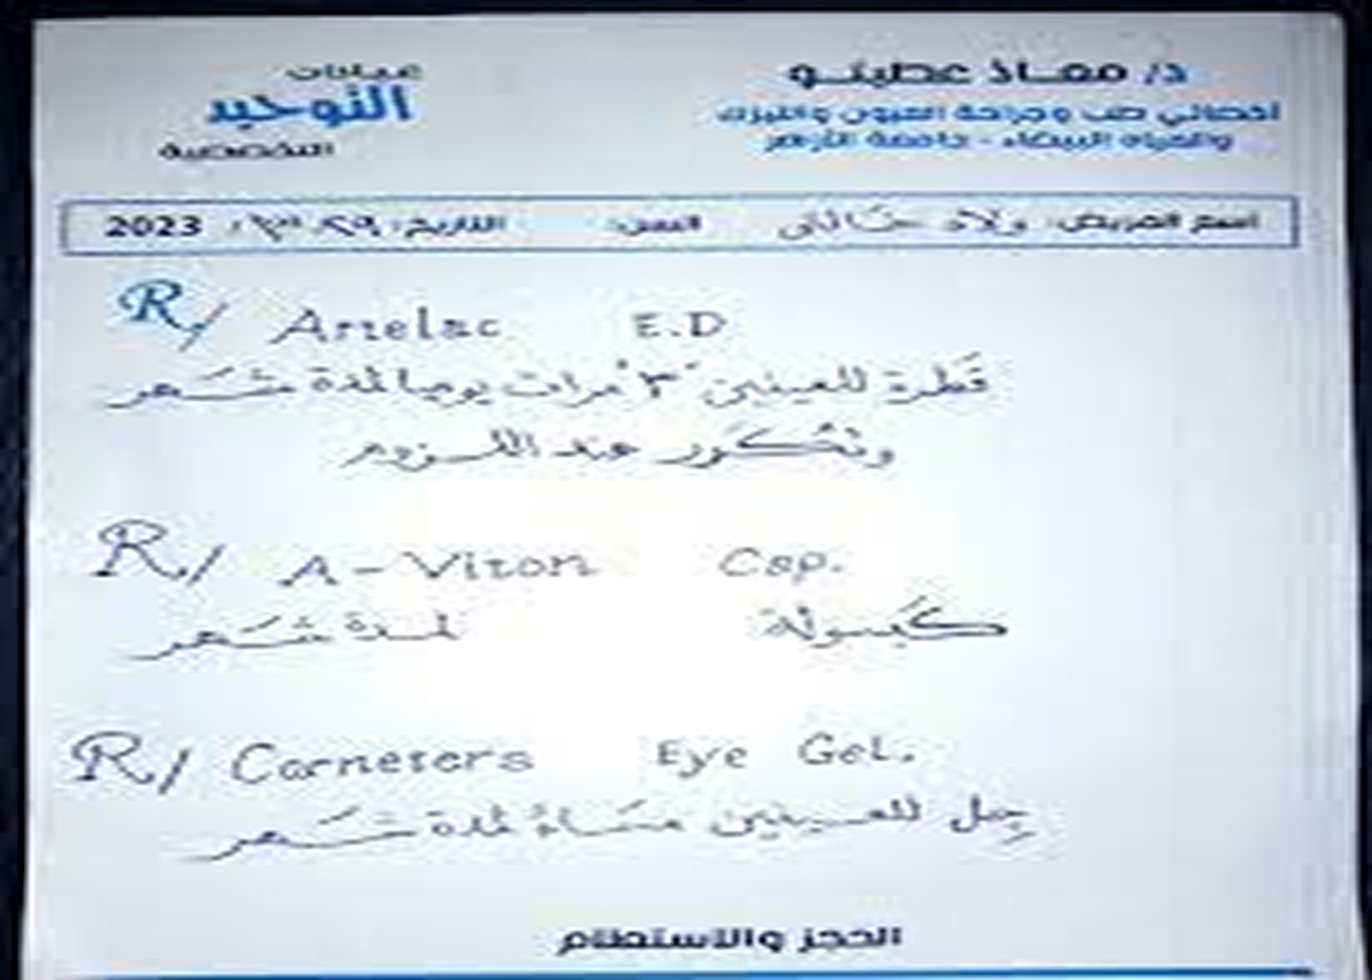 د/ معاذ عطيتو
أخصائي طب وجراحة العيون والليزك
والمياه البيضاء - جامعة الأزهر
عيادات
التوحيد
التخصصية
اسم المريض: ولاء السن: التاريخ: 2023
R/ Artelac E.D
قطرة للعينين ٣ مرات يوميا لمدة شهر
وتكرر عند اللزوم
R/ A-Viton Cap.
كبسولة لمدة شهر
R/ Corneters Eye Gel.
جل للعينين مساءً لمدة شهر
الحجز والاستعلام